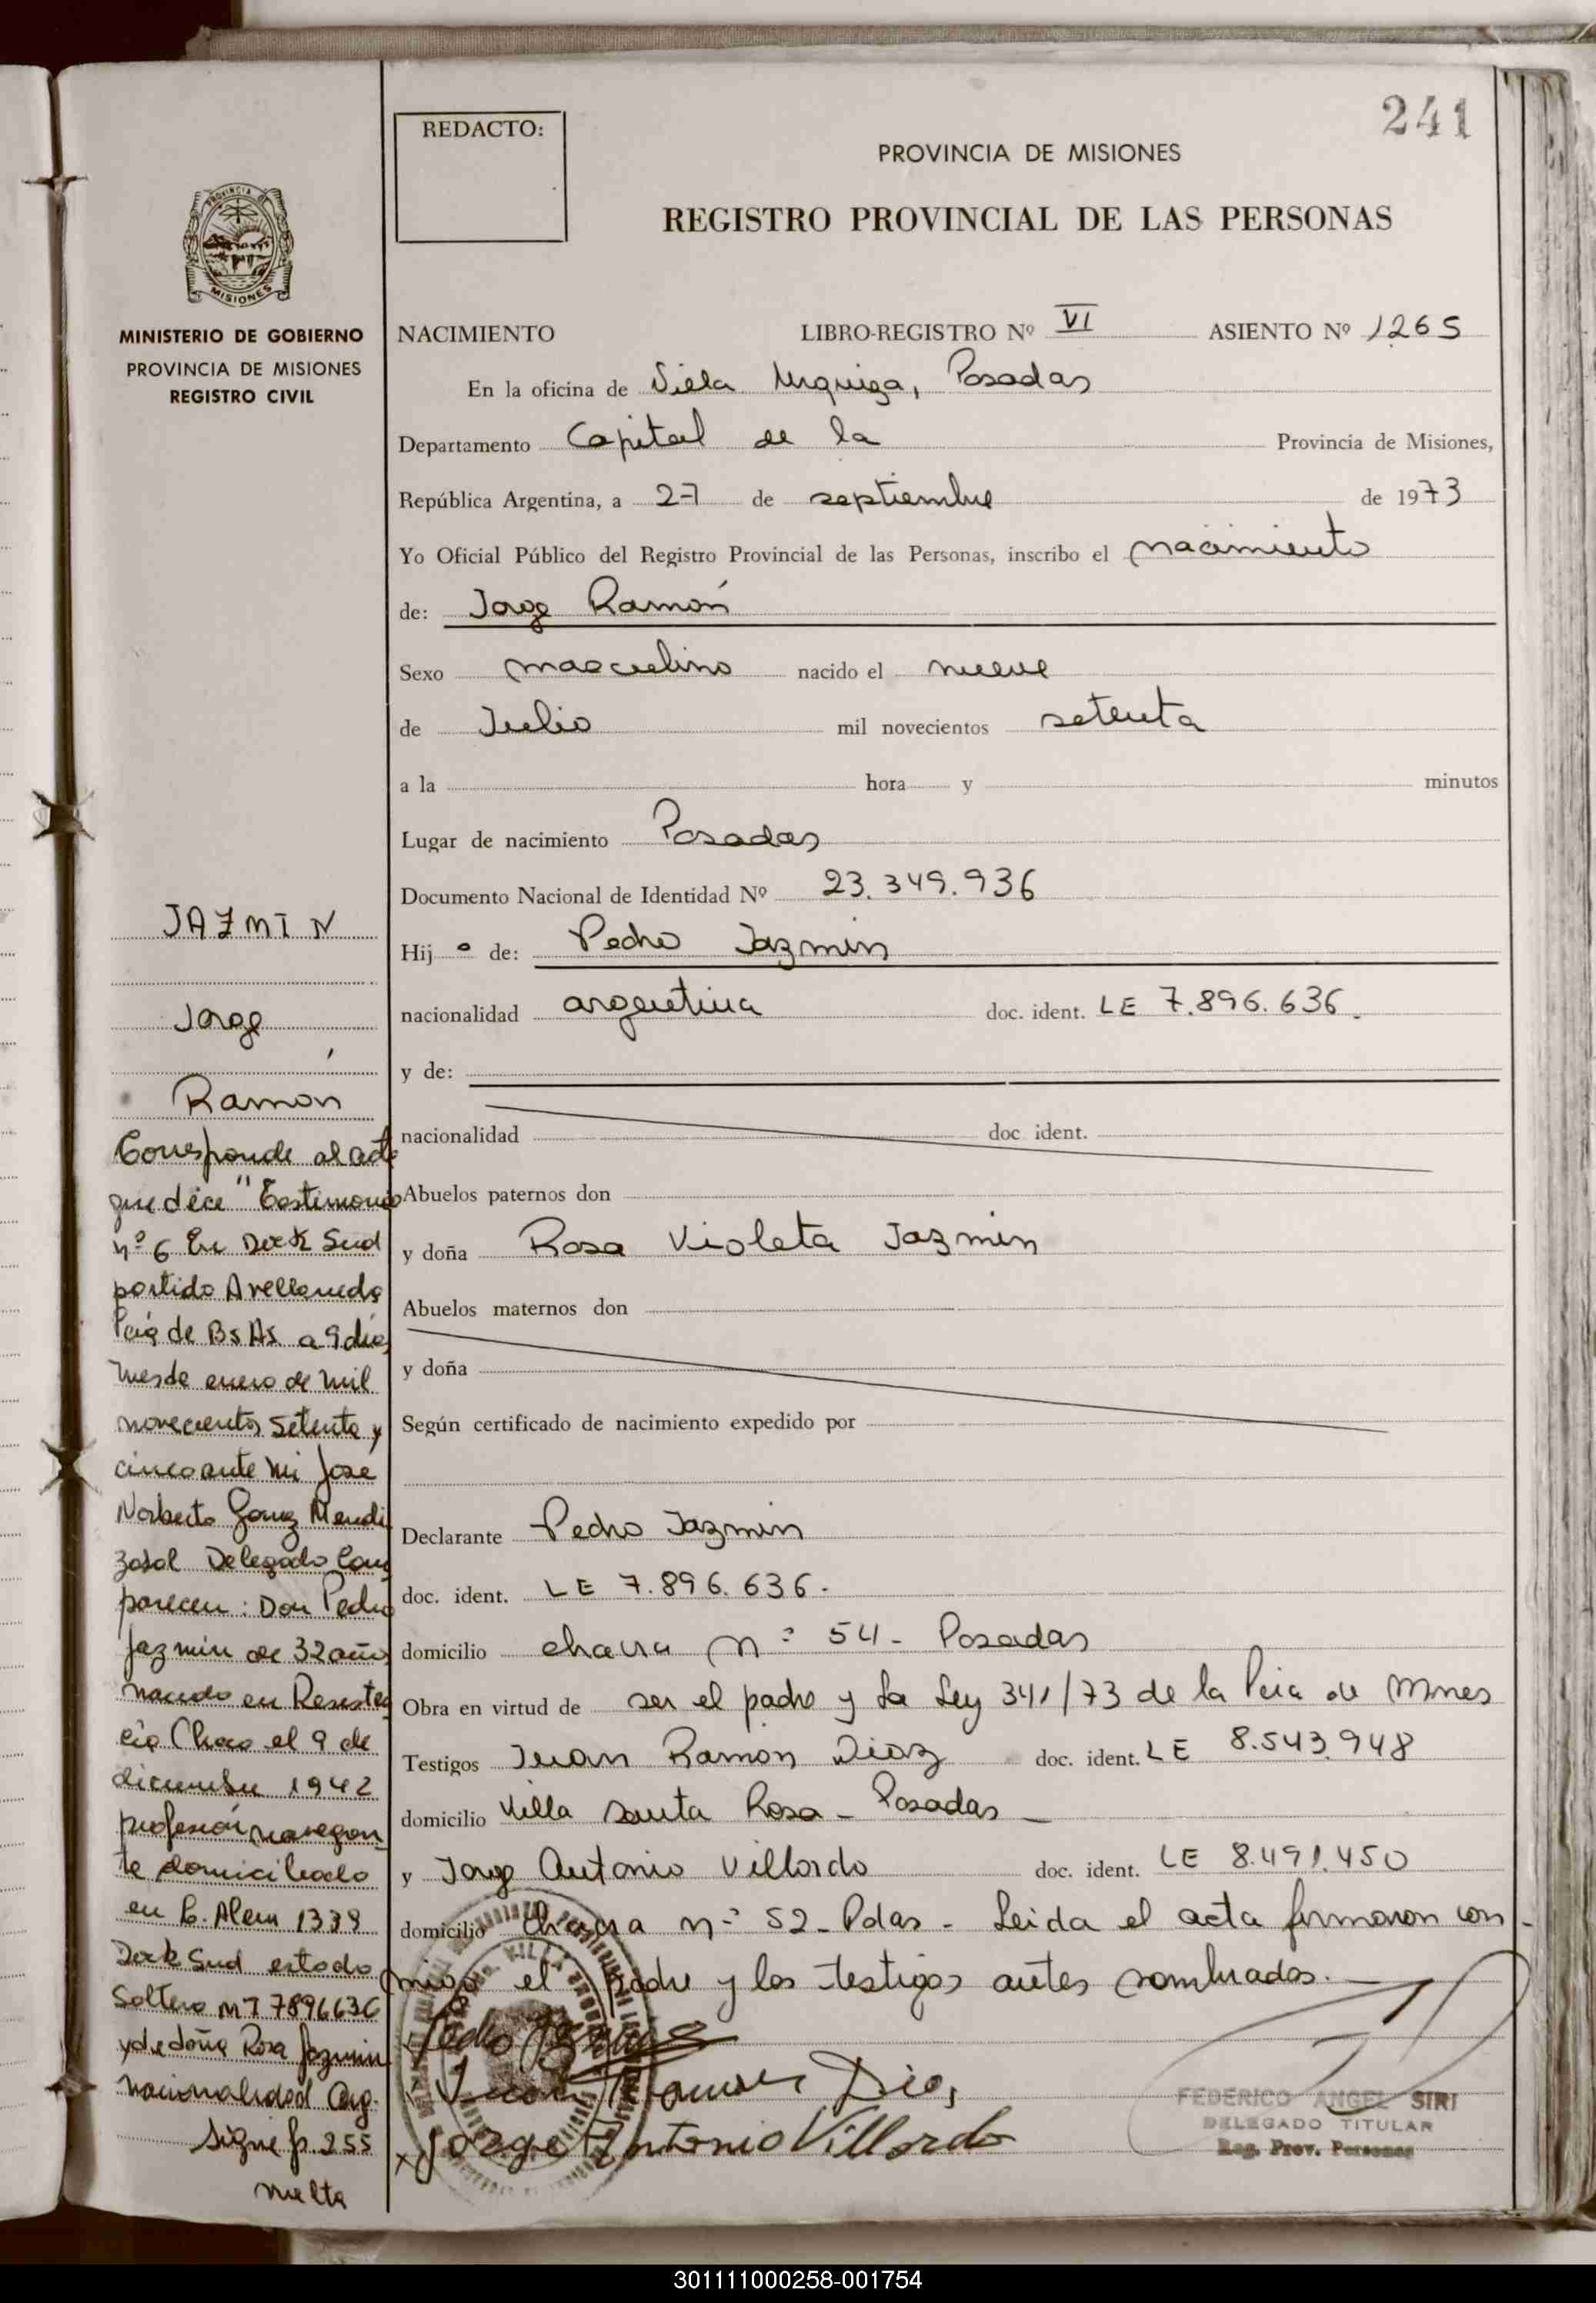 241
REDACTO:
PROVINCIA DE MISIONES
REGISTRO PROVINCIAL DE LAS PERSONAS
PROVINCIA
MISIONES
MINISTERIO DE GOBIERNO
PROVINCIA DE MISIONES
REGISTRO CIVIL
NACIMIENTO LIBRO-REGISTRO Nº VI ASIENTO Nº 1265
En la oficina de Villa Urquiza, Posadas
Departamento Capital de la Provincia de Misiones,
República Argentina, a 27 de septiembre de 1973
Yo Oficial Público del Registro Provincial de las Personas, inscribo el nacimiento
de: Jorge Ramón
Sexo masculino nacido el nueve
de Julio mil novecientos setenta
a la hora y minutos
Lugar de nacimiento Posadas
Documento Nacional de Identidad Nº 23.349.936
Hijo de: Pedro Jazmin
nacionalidad argentina doc. ident. LE 7.896.636.
y de:
nacionalidad doc ident.
Abuelos paternos don
y doña Rosa Violeta Jazmin
Abuelos maternos don
y doña
Según certificado de nacimiento expedido por
Declarante Pedro Jazmin
doc. ident. LE 7.896.636.
domicilio chacra nº 54 - Posadas
Obra en virtud de ser el padre y la Ley 341/73 de la Pcia de Mnes
Testigos Juan Ramon Diaz doc. ident. LE 8.543.948
domicilio Villa Santa Rosa - Posadas
y Jorge Antonio Villordo doc. ident. LE 8.491.450
domicilio chacra nº 52 - Pdas - Leida el acta firmaron con-
migo el padre y los testigos antes nombrados.
Pedro Jazmin
Juan Ramon Diaz
x Jorge Antonio Villordo
FEDERICO ANGEL SIRI
DELEGADO TITULAR
Reg. Prov. Personas
JAZMIN
Jorge
Ramón
Corresponde al acta
que dice "Testimonio
nº 6 En Dock Sud
partido Avellaneda
Pcia de Bs As. a 9 dias
mes de enero de mil
novecientos setenta y
cinco ante mi Jose
Norberto Gomez Mendi
zabal Delegado Com
parecen: Don Pedro
Jazmin de 32 años
nacido en Resisten
cia Chaco el 9 de
diciembre 1942
profesión navegan-
te domiciliado
en L. Alem 1339
Dock Sud estado
Soltero MI 7896636
y de doña Rosa Jazmin
nacionalidad Arg.
Sigue f. 255
vuelta
301111000258-001754